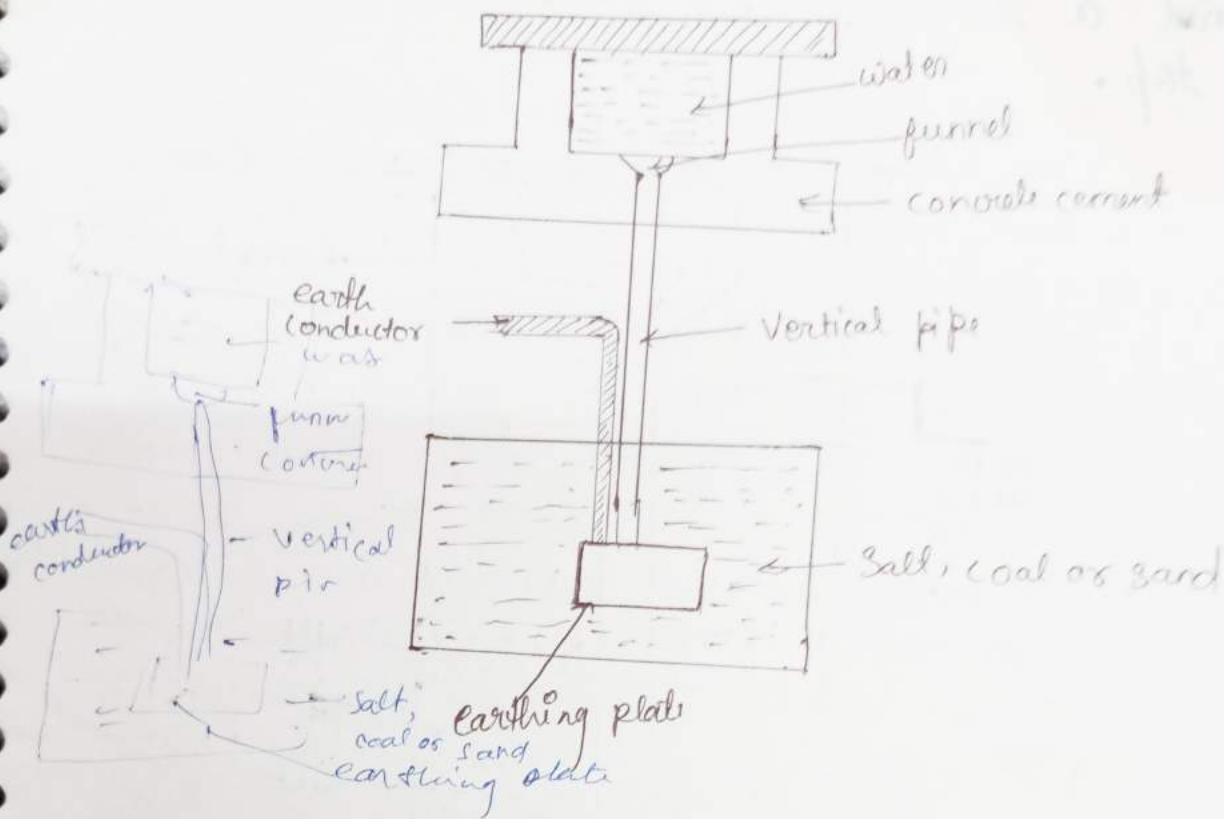 water
funnel
concrete cement
earth
conductor
Vertical pipe
Salt, coal or sand
earthing plate
was
funn
Concre
earth's
conductor
vertical
pir
Salt,
coal or sand
earthing plate